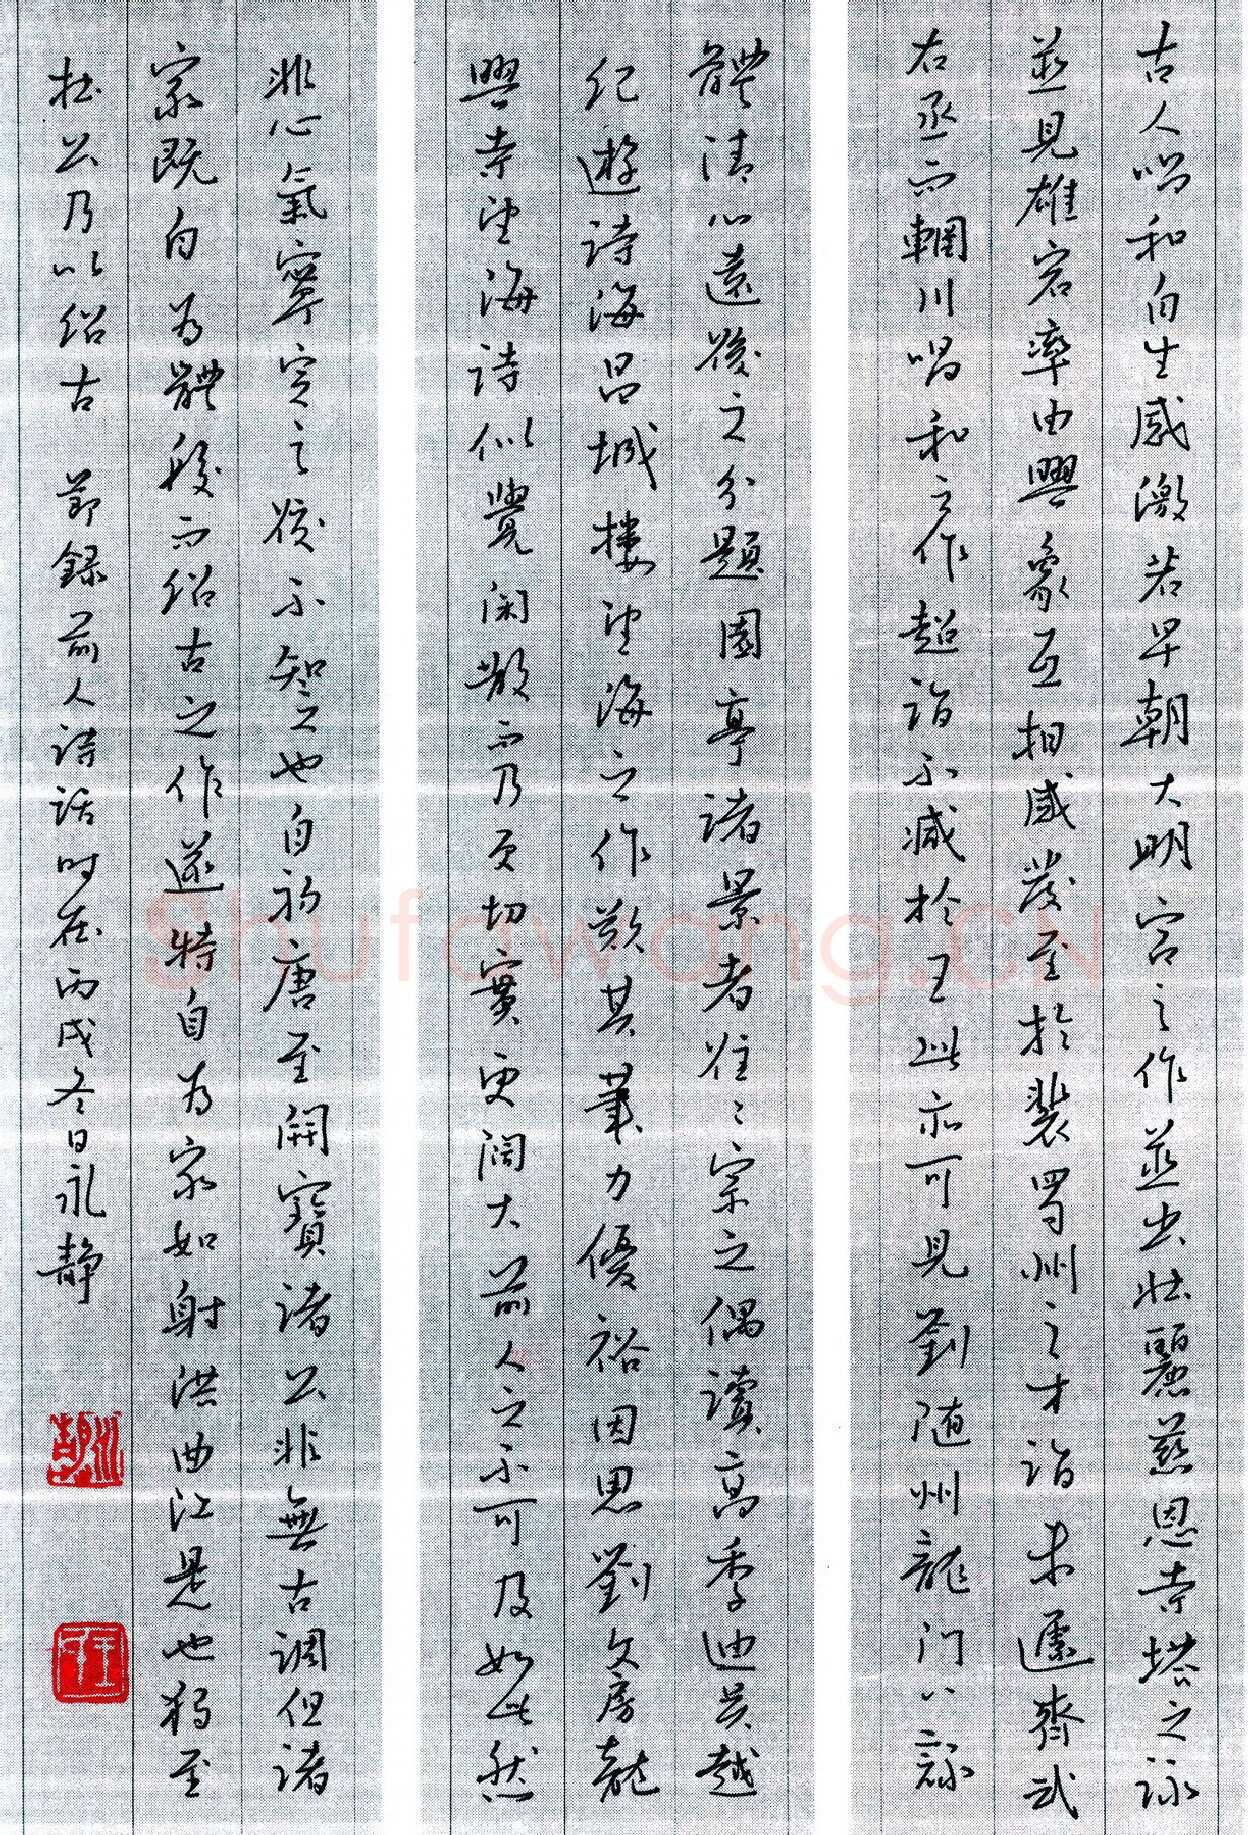 古人唱和自生感激若早朝大明宫之作並出壮麗慈恩寺塔之詠
並見雄宕率由興象互相感發至於裴蜀州之才詣未遽齊武
右丞而輞川唱和之作超詣不减於王此亦可見劉随州龍门八詠
體清心遠後之分題園亭诸景者往往宗之偶讀高季迪吴越
纪遊诗海昌城楼望海之作歎其筆力優裕因思劉文房龍
興寺望海诗似覺闲散而乃更切實更阔大前人之不可及如此然
非心氣寧定之後不智之也自初唐至開寶诸公非無古调但诸
家既自为體段而绍古之作遂特自为家如射洪曲江是也獨至
杜公乃以绍古 節録前人诗话时在丙戌冬日永静
Shufawang.CN